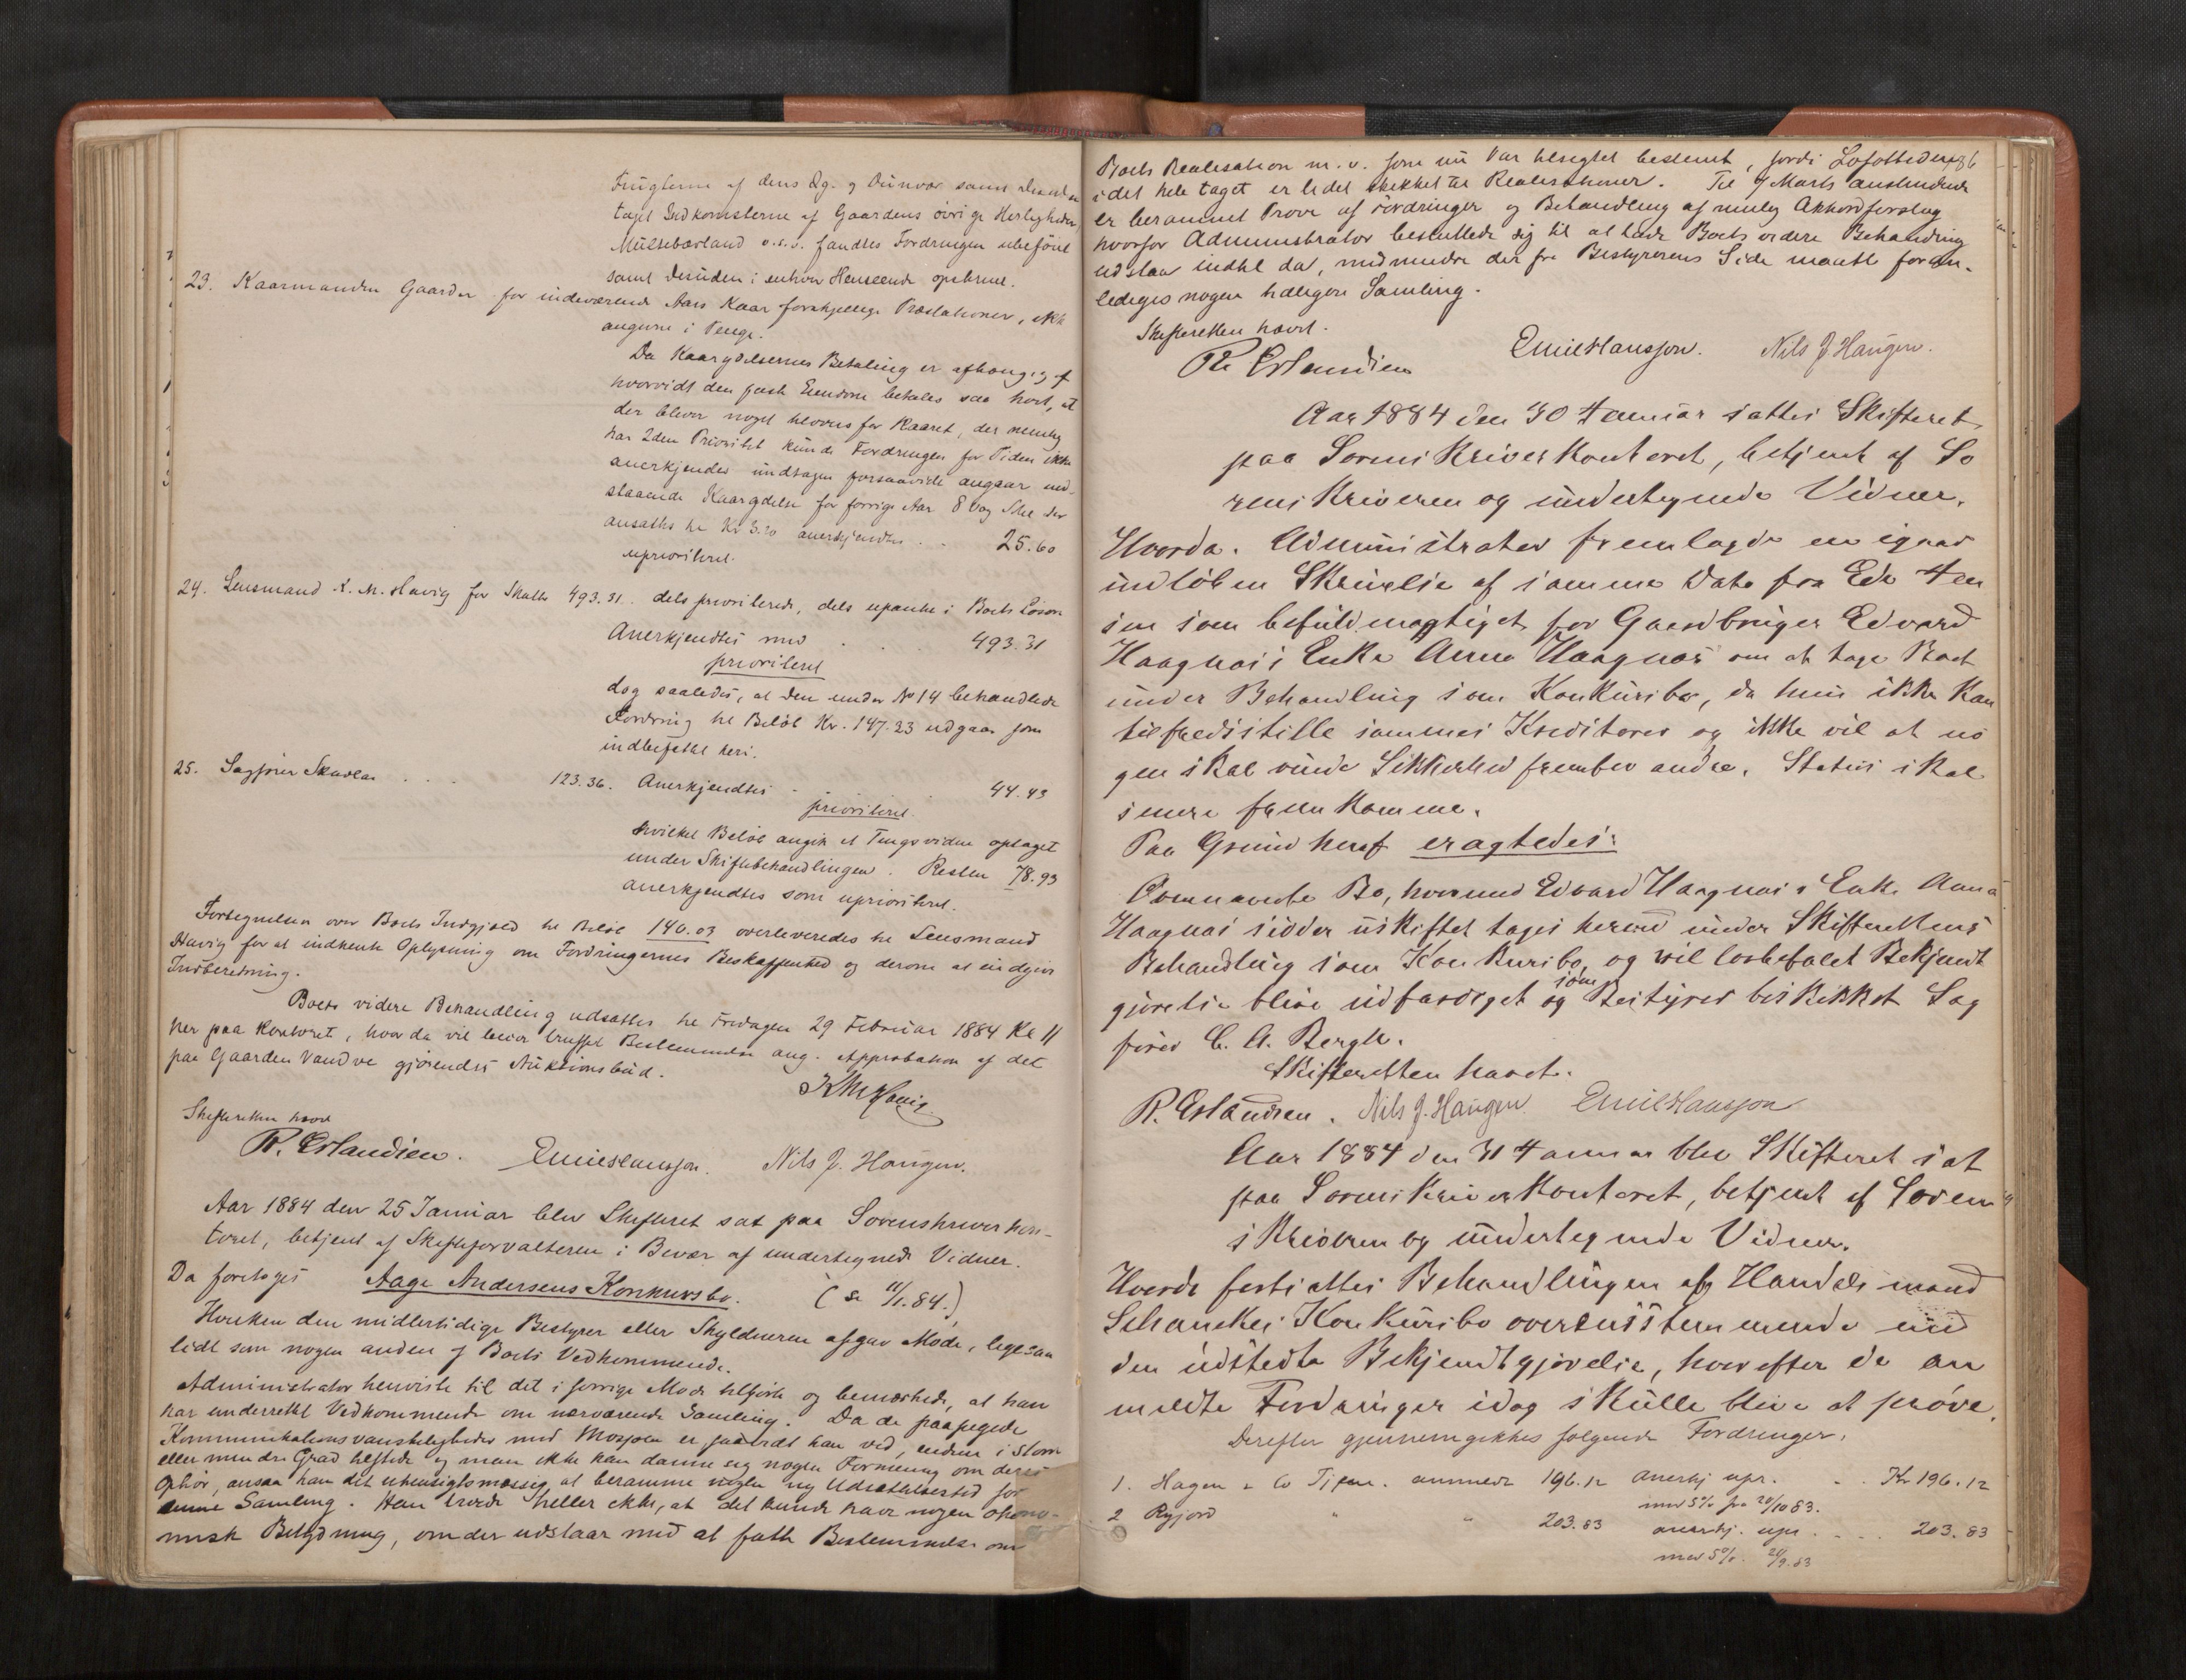 Frugterne af dens Æg. og Dunvær samt desuden
taget Indkomsterne af Gaardens øvrige Herligheder,
Multebærland o.s.v. fandtes Fordringen ubeføiet
samt desuden i enhver Henseende opskruet.
23. Kaarmanden Gaarder for indeværende Aars Kaar forskjellige Præstationer, ikke
angivne i Penge.
Da Kaarydelsernes Betaling er afhængig af
hvorvidt den faste Eiendom betales saa høit, at
der bliver noget tilovers for Kaaret, der nemlig
har 2den Prioritet kunde Fordringen for Tiden ikke
anerkjendes undtagen forsaavidt angaar ud-
staaende Kaarydelse for forrige Aar 8 Vog Sild der
ansattes til Kr 3.20 anerkjendtes . . 25.60
uprioriteret.
24. Lensmand K. M. Havig for Skatter 493.31. dels prioriterede, dels upantede i Boets Eiendom
Anerkjendtes med . . . 493.31
prioriteret
dog saaledes, at den under No 14 behandlede
Fordring til Beløb Kr. 147.23 udgaar som
indbefattet heri.
25. Sagfører Skavlan . . . 123.36. Anerkjendtes . . 44.43
prioriteret.
hvilket Beløb angik et Tingsvidne optaget
under Skiftebehandlingen. Resten 78.93
anerkjendtes som uprioriteret.
Fortegnelsen over Boets Indgjæld til Beløb 140.03 overleveredes til Lensmand
Havig for at indhente Oplysning om Fordringernes Beskaffenhed og derom at indgive
Indberetning.
Boets videre Behandling udsattes til Fredagen 29 Februar 1884 Kl 11
her paa Kontoret, hvor da vil blive truffet Bestemmelse ang. Approbation af det
paa Gaarden Vandve gjørendes Auktionsbud.
K M Havig
Skifteretten hævet
R. Erlandsen. Emil Hansson. Nils J. Haugen.
Aar 1884 den 25 Januar blev Skifteret sat paa Sorenskriverkon-
toret, betjent af Skifteforvalteren i Bevær af undertegnede Vidner.
Da foretoges Aage Andersens Konkursbo. (se 11/1.84.)
Hverken den midlertidige Bestyrer eller Skyldneren afgav Møde, ligesaa
lidt som nogen anden af Boets Vedkommende.
Administrator henviste til det i forrige Møde tilførte og bemærkede, at han
har underrettet Vedkommende om nærværende Samling. Da de paapegede
Kommunikationsvanskeligheder med Mosjøen er saavidt han ved, endnu i større
eller mindre Grad tilstede og man ikke kan danne sig nogen Formening om deres
Ophør, ansaa han det uhensigtsmæssig at beramme nogen ny Udsættelsestid for
denne Samling. Han troede heller ikke, at det kunde have nogen økono-
misk Betydning, om der udstaar med at fatte Bestemmelse om
Boets Realisation m. v. som nu var tilsigtet bestemt, fordi Lofottiden
i det hele taget er lidet skikket til Realisationer. Til 7 Marts anstundende
er berammet Prøve af Fordringer og Behandling af mulig Akkordforslag
hvorfor Administrator besluttede sig til at lade Boets videre Behandling
udstaa indtil da, medmindre der fra Bestyrerens Side maatte foran-
lediges nogen tidligere Samling.
Skifteretten hævet.
R. Erlandsen Emil Hansson. Nils J Haugen.
Aar 1884 den 30 Januar sattes Skifteret
paa Sorenskriverkontoret, betjent af So
renskriveren og undertegnede Vidner.
Hvorda. Administrator fremlagde en igaar
indløben Skrivelse af samme Dato fra Edv Jen
sen som befuldmægtiget for Gaardbruger Edvard
Haagnæs's Enke Anna Haagnæs om at tage Boet
under Behandling som Konkursbo, da hun ikke kan
tilfredsstille sammes Kreditorer og ikke vil at no
gen skal vinde Sikkerhed fremfor andre. Status skal
senere fremkomme.
Paa Grund heraf eragtedes:
Ovennævnte Bo, hvormed Edvard Haagnæs's Enke Anna
Haagnæs sidder uskiftet tages herved under Skifterettens
Behandling som Konkursbo, og vil lovbefalet Bekjendt
gjørelse blive udfærdiget og som Bestyrer beskikket Sag
fører C. A. Bergh.
Skifteretten hævet.
R. Erlandsen. Nils J. Haugen Emil Hansson
Aar 1884 den 31 Januar blev Skifteret sat
paa Sorenskriverkontoret, betjent af Soren
skriveren og undertegnede Vidner.
Hvorda fortsattes Behandlingen af Handelsmand
Schanckes Konkursbo overensstemmende med
den udstedte Bekjendtgjørelse, hvorefter de an
meldte Fordringer idag skulle blive at prøve.
Derefter gjennemgikkes følgende Fordringer.
1. Hagen & Co Tjøm. anmeldt 196.12 Anerkj upr. . . Kr 196.12
med 5% fra 20/10 83.
2 Ryjord " " 203.83 anerkj. upr. . . . 203.83
med 5%. 20/9.83